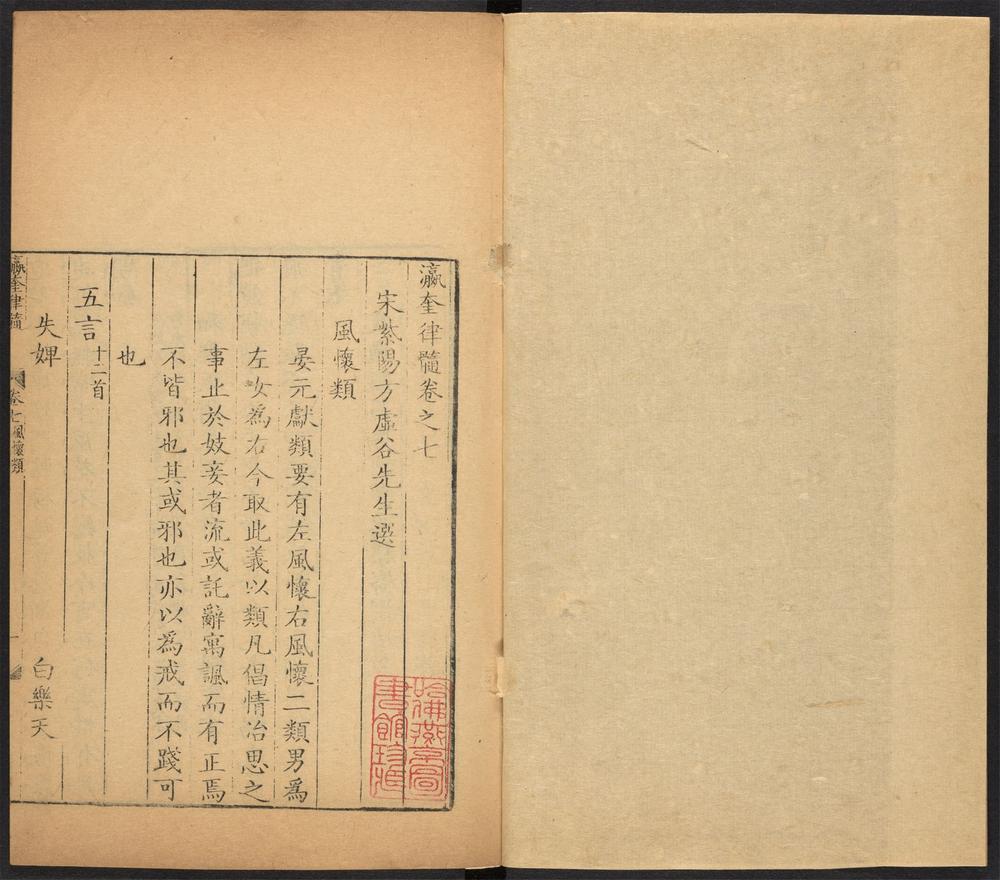 瀛奎律髓卷之七
宋紫陽方虛谷先生選
風懷類
晏元獻類要有左風懷右風懷二類男為
左女為右今取此義以類凡倡情冶思之
事止於妓妾者流或託辭寓諷而有正焉
不皆邪也其或邪也亦以為戒而不踐可
也
五言十二首
失婢 白樂天
瀛奎律髓 卷七風懷類 一
哈佛燕京圖
書館珍藏